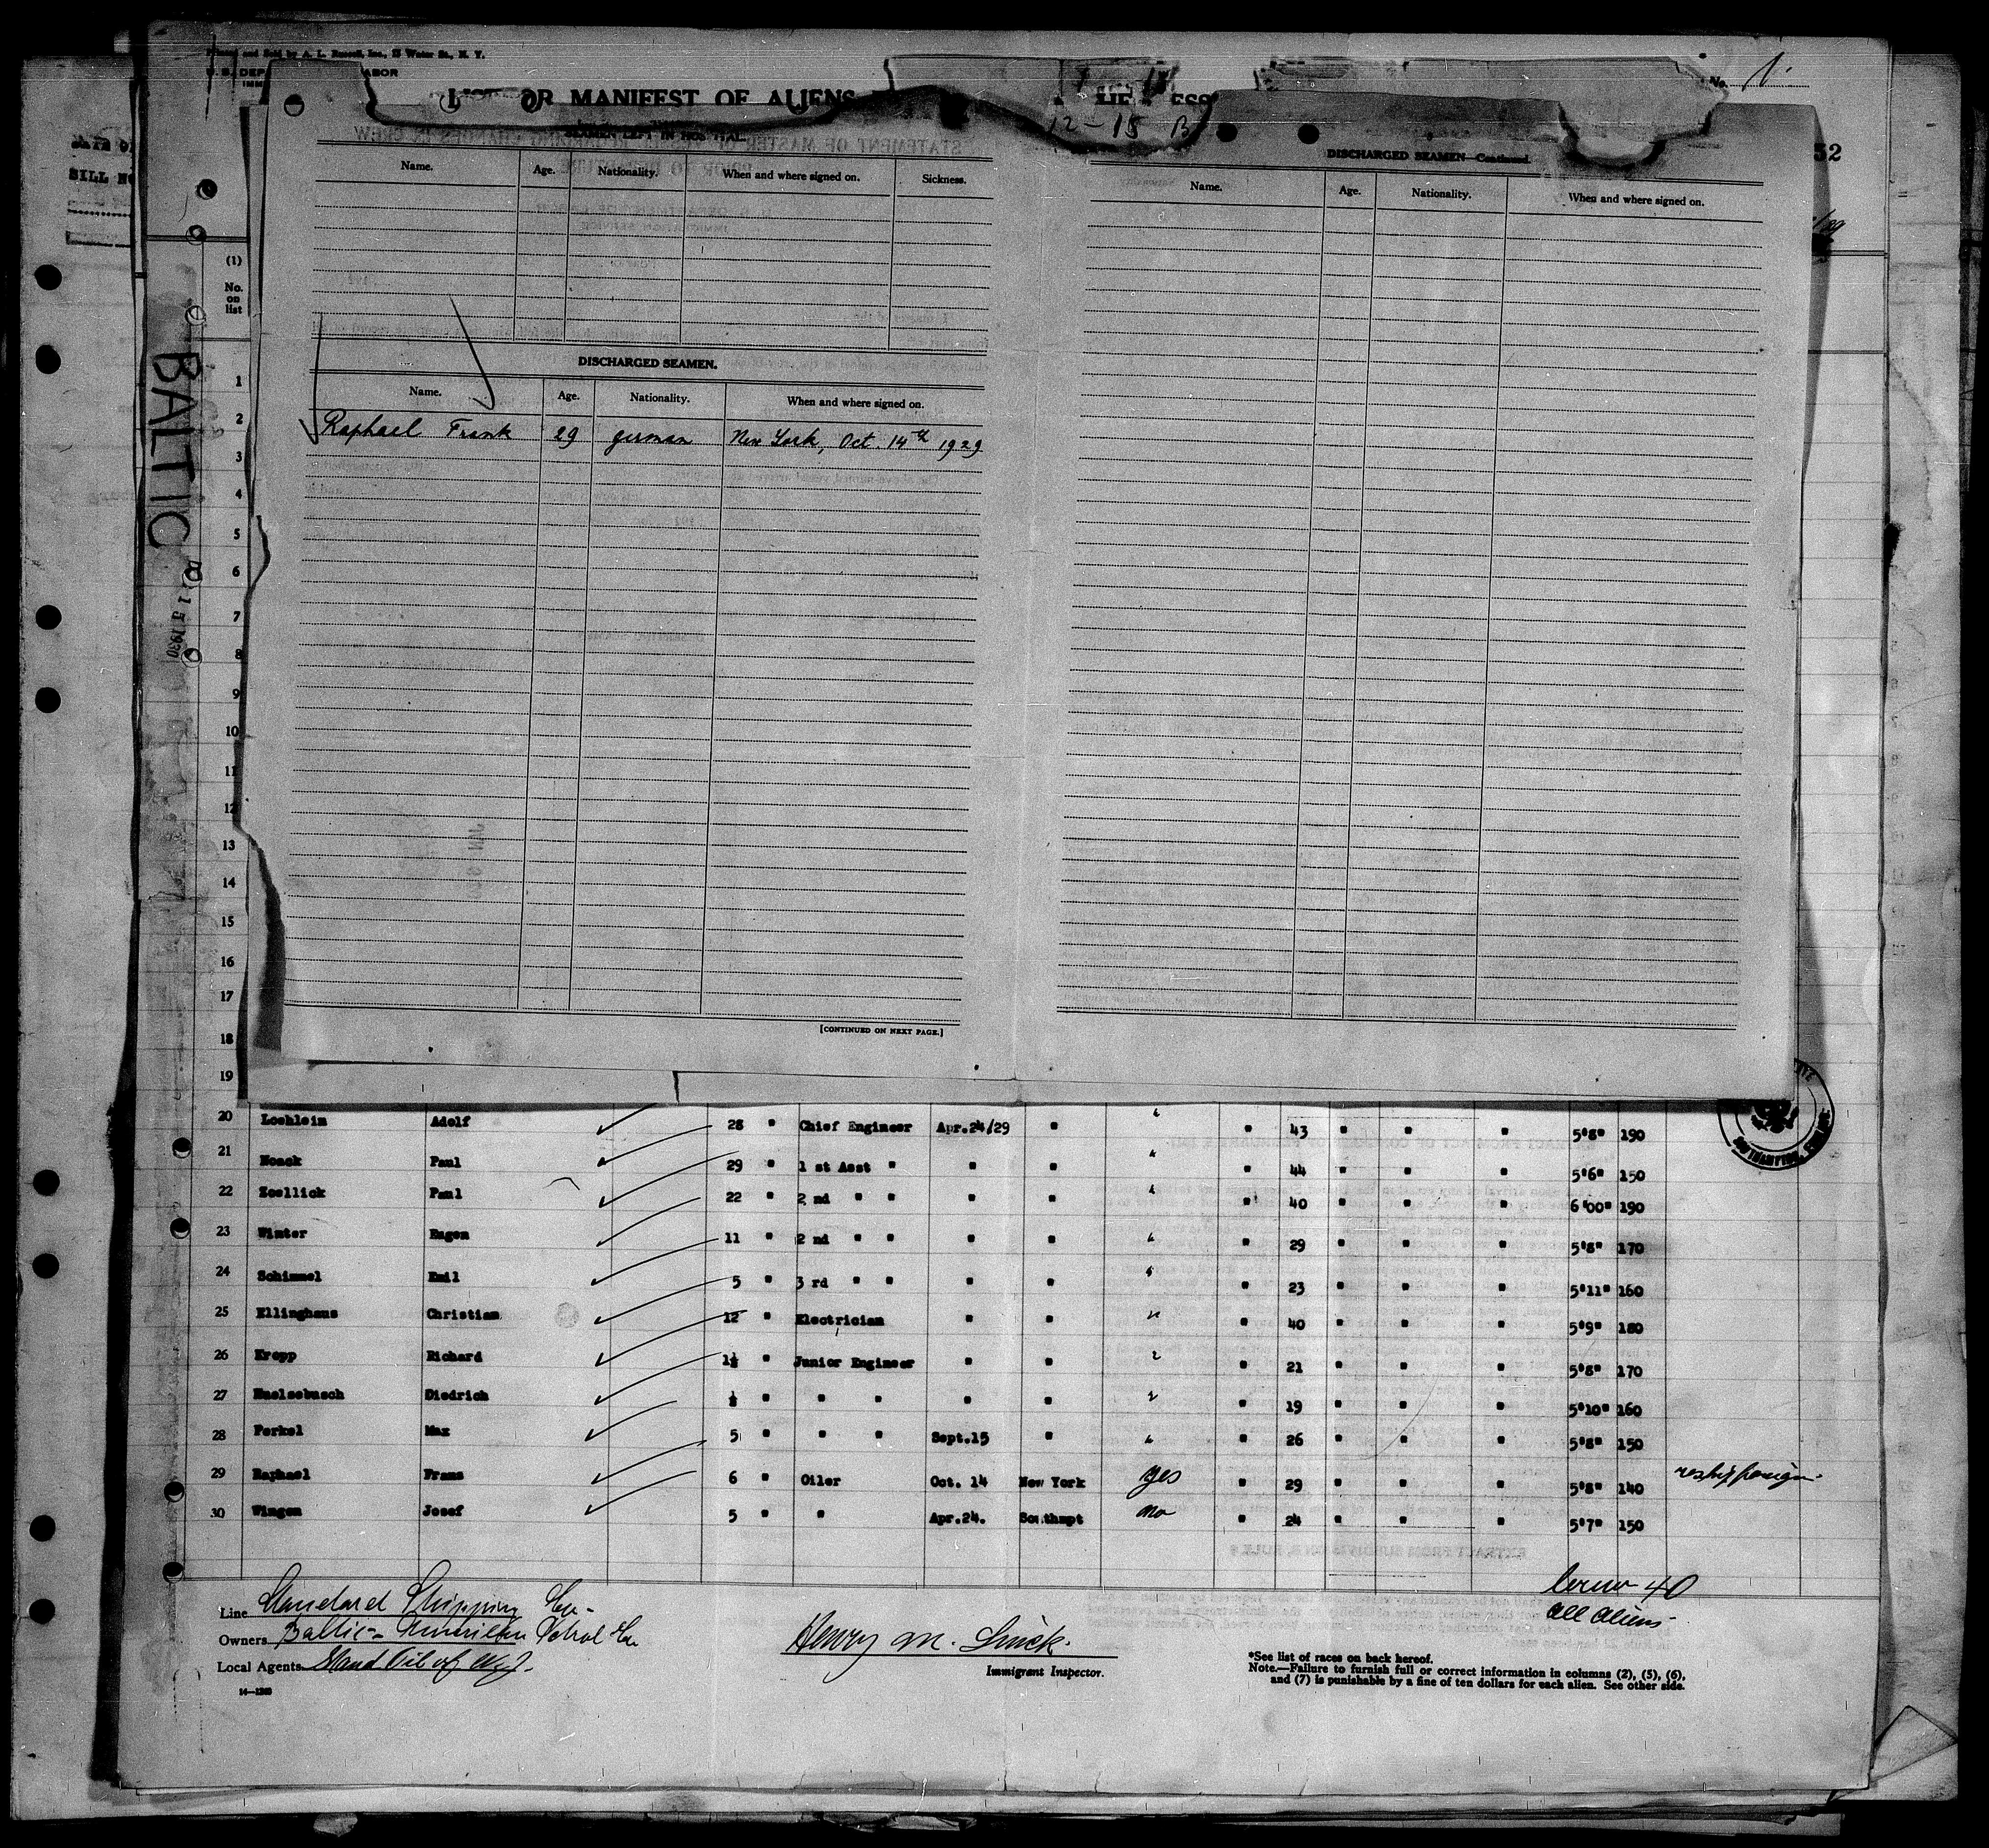 Printed and Sold by A. L. Russell, Inc., 15 Water St., N. Y.
U. S. DEP ABOR
IMM
LIST OR MANIFEST OF ALIENS
No. 1
12-15 B
52
BILL NO
SEAMEN LEFT IN HOSPITAL.
Name. Age. Nationality. When and where signed on. Sickness.
DISCHARGED SEAMEN.
Name. Age. Nationality. When and where signed on.
Raphael Frank 29 german New York, Oct. 14th 1929
[CONTINUED ON NEXT PAGE.]
DISCHARGED SEAMEN—Continued.
Name. Age. Nationality. When and where signed on.
BALTIC
5 1930
(1)
No.
on
list
1
2
3
4
5
6
7
8
9
10
11
12
13
14
15
16
17
18
19
20 Loehlein Adolf 28 " Chief Engineer Apr.24/29 " " " 43 " " " 5'8" 190
21 Noack Paul 29 " 1 st Asst " " " " " 44 " " " 5'6" 150
22 Zoellick Paul 22 " 2 nd " " " " " " 40 " " " 6'00" 190
23 Winter Eugen 11 " 2 nd " " " " " " 29 " " " 5'8" 170
24 Schimmel Emil 5 " 3 rd " " " " " " 23 " " " 5'11" 160
25 Ellinghaus Christian 12 " Electrician " " " " 40 " " " 5'9" 180
26 Kropp Richard 1½ " Junior Engineer " " " " 21 " " " 5'8" 170
27 Huelsebusch Diedrich ½ " " " " " " " 19 " " " 5'10" 160
28 Perkel Max 5 " " " Sept.15 " " " 26 " " " 5'8" 150
29 Raphael Franz 6 " Oiler Oct. 14 New York yes " 29 " " " 5'8" 140 reship foreign
30 Wingen Josef 5 " " Apr.24. Southmpt no " 24 " " " 5'7" 150
Line Standard Shipping Co.
Owners Baltic-American Petrol Co
Local Agents Stand Oil of N.J.
14—1240
Henry M.
Immigrant Inspector.
Crew 40
all aliens
*See list of races on back hereof.
Note.—Failure to furnish full or correct information in columns (2), (5), (6),
and (7) is punishable by a fine of ten dollars for each alien. See other side.